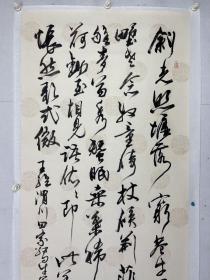 斜光照墟落窮巷牛
野老念牧童倚杖候荆扉
雉雊麥苗秀蠶眠桑葉稀
荷鋤至相見語依依即此
悵然歌式微 王維渭川田家